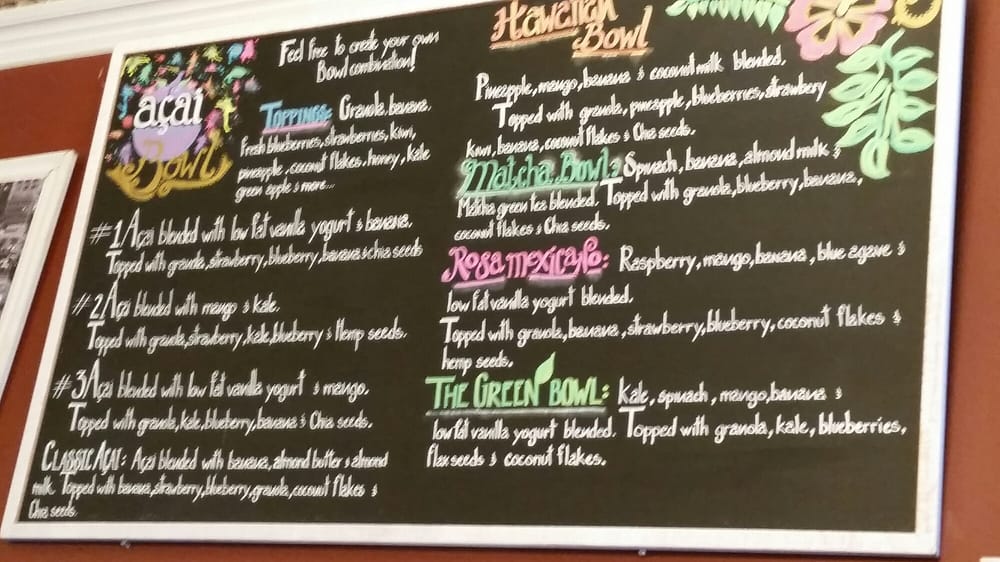 açaí
Bowl
Feel free to create your own
Bowl combination!
TOPPINGS: Granola, banana,
Fresh blueberries, strawberries, kiwi,
pineapple, coconut flakes, honey, kale
green apple & more...
#1 Açai blended with low fat vanilla yogurt & banana.
Topped with granola, strawberry, blueberry, banana & chia seeds
#2 Açai blended with mango & kale.
Topped with granola, strawberry, kale, blueberry & Hemp seeds.
#3 Açai blended with low fat vanilla yogurt & mango.
Topped with granola, kale, blueberry, banana & Chia seeds.
CLASSIC AÇAI: Açai blended with banana, almond butter & almond
milk. Topped with banana, strawberry, blueberry, granola, coconut flakes &
Chia seeds.
Hawaiian
Bowl
Pineapple, mango, banana & coconut milk blended.
Topped with granola, pineapple, blueberries, strawbery
kiwi, banana, coconut flakes & Chia seeds.
Matcha Bowl: Spinach, banana, almond milk &
Matcha green tea blended. Topped with granola, blueberry, banana,
coconut flakes & Chia seeds.
Rosa mexicano: Raspberry, mango, banana, blue agave &
low fat vanilla yogurt blended.
Topped with granola, banana, strawberry, blueberry, coconut flakes &
hemp seeds.
THE GREEN BOWL: Kale, spinach, mango, banana &
low fat vanilla yogurt blended. Topped with granola, kale, blueberries,
flaxseeds & coconut flakes.